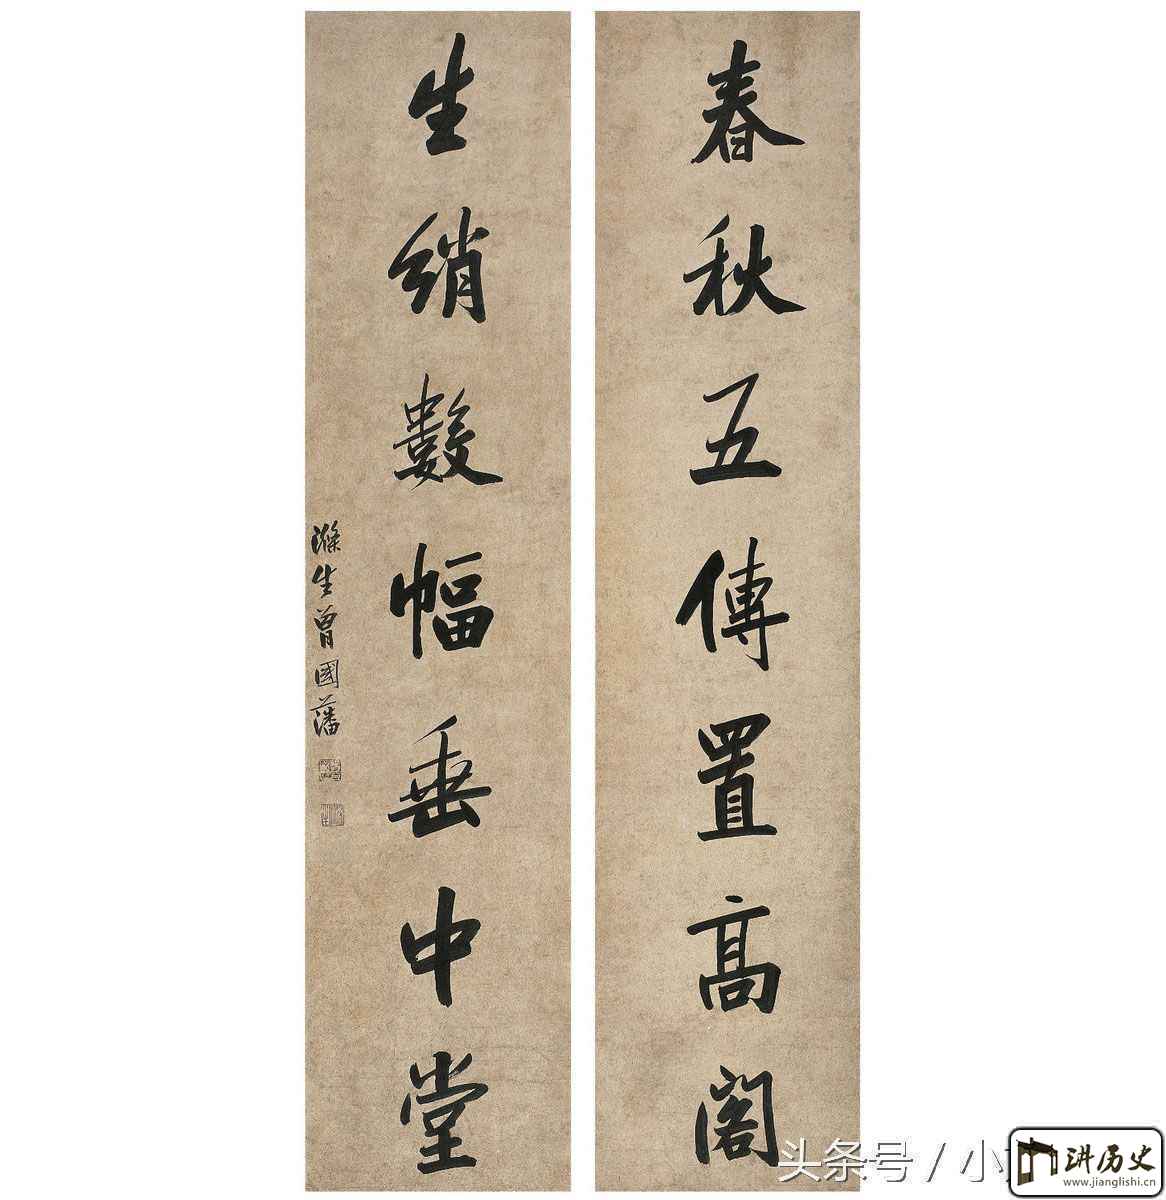 春秋五傳置高阁
生绡數幅垂中堂
滌生曾國藩
头条号 / 小
讲历史
www.jianglishi.cn